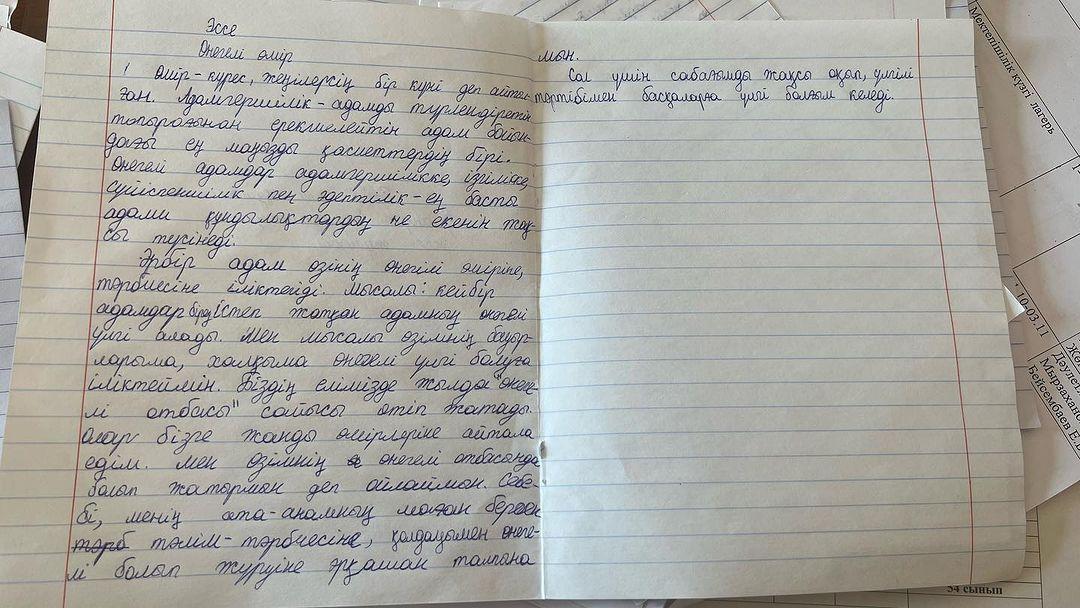 Эссе
Өнегелі өмір
Өмір - күрес, жеңілерсің бір күні деп айтыл-
ған. Адамгершілік - адамды түрлендіретін
топырағынан ерекшелейтін адам бойын-
дағы ең маңызды қасиеттердің бірі.
Өнегелі адамдар адамгершілікке, ізгілікке,
сүйіспеншілік пен әдептілік - ең басты
адами құндылықтардың не екенін жақ-
сы түсінеді.
Әрбір адам өзінің өнегелі өміріне,
тәрбиесіне іліктейді. Мысалы: кейбір
адамдар біреу істеп жатқан адамның өнегелі
үлгі алады. Мен мысалы өзімнің бауыр-
ларыма, халқыма өнегелі үлгі болуға
іліктеймін. Біздің елімізде жылда "өнеге-
лі отбасы" сайысы өтіп жатады.
олар бізге жанды өмірлеріне айтала
едім. мен өзімнің өнегелі отбасында
болып жатырмын деп ойлаймын. Себе-
бі, менің ата-анамның маған берген
тәрб тәлім-тәрбиесіне, қолдауымен өнеге-
лі болып жүруіне әрқашан талпына
мын.
Сол үшін сабағымды жақсы оқып, үлгілі
тәртібімен басқаларға үлгі болғым келеді.
Мектепішілік күзгі лагерь
10-03.11
Дәулет
Мырзахано
Бейсембаев Е.
54 сынып